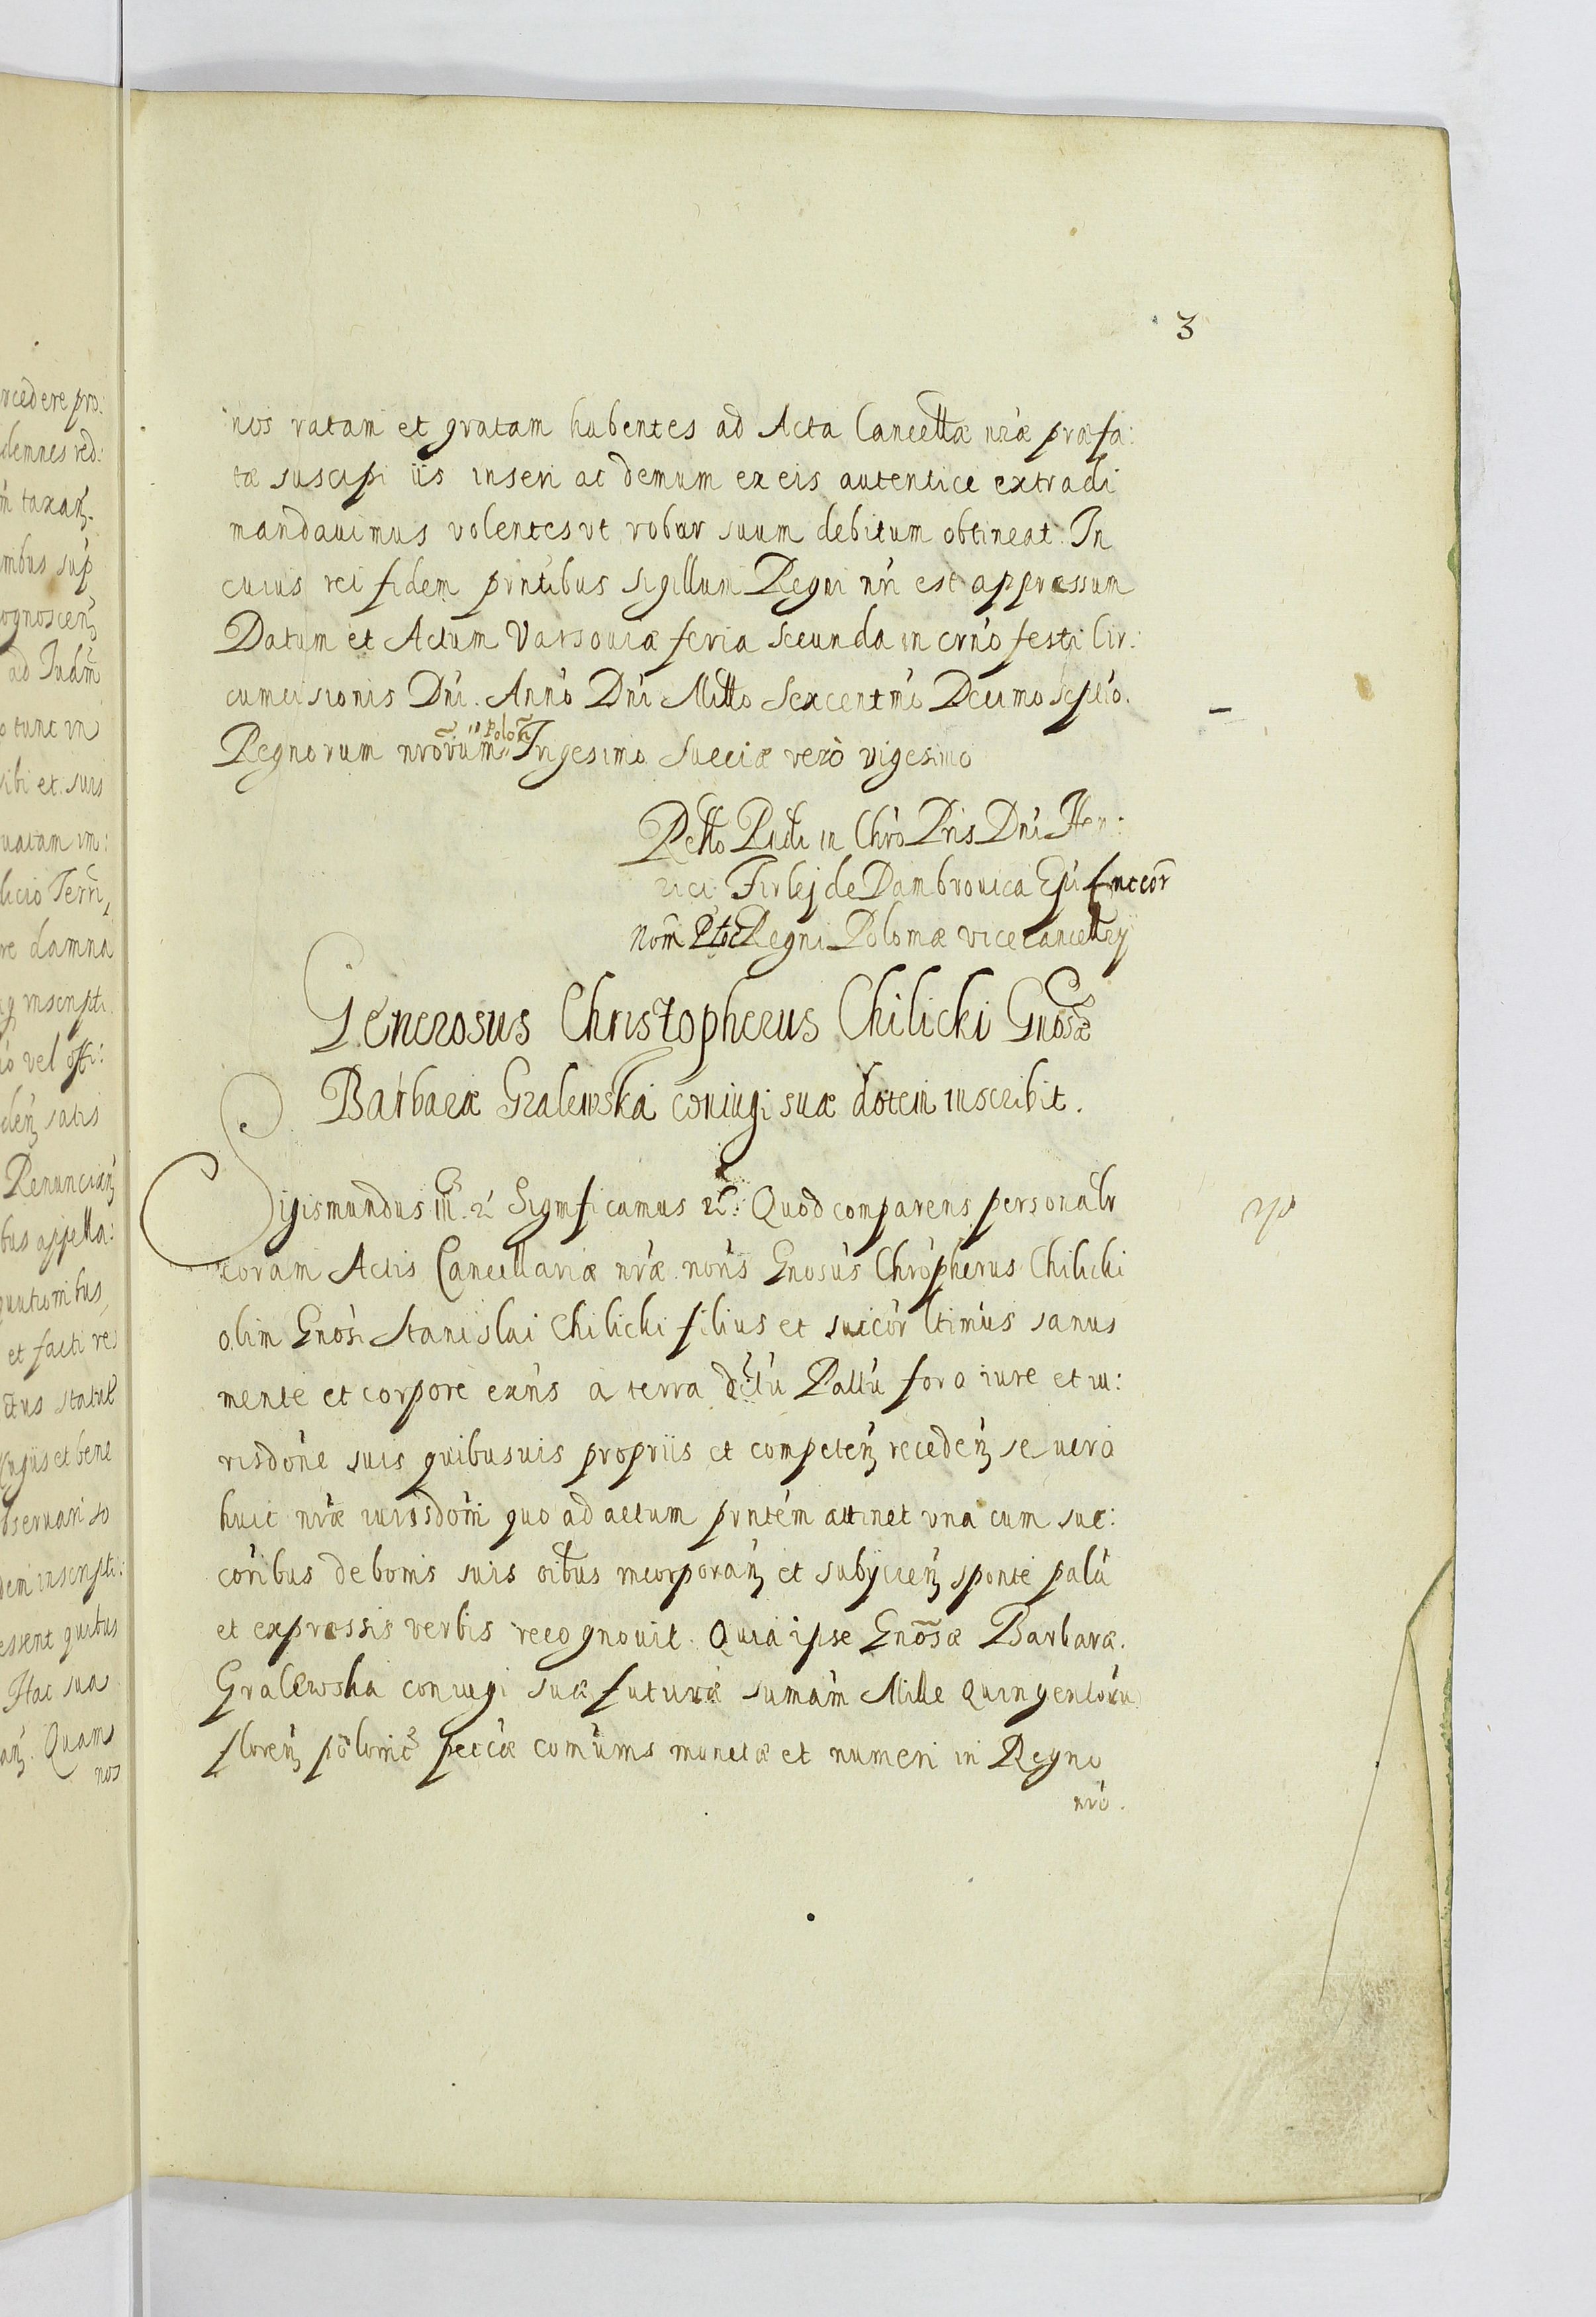 3
nos ratam et gratam habentes ad Acta Cancellæ nræ præfa:
tæ suscipi iis inseri ac demum ex eis autentice extradi
mandauimus volentes vt robur suum debitum obtineat. In
cuius rei fidem pñtibus sigillum Regni nri est appressum
Datum et Actum Varsouiæ feria secunda in crño festi Cir:
cumcisionis Dni. Anno Dni Millo Sexcentmo Decimo septio.
Regnorum nrorum Polo Trigesimo Sueciæ verò vigesimo
Rello Rndi in Chro Pris Dni Hen:
rici Firlej de Dambrouica Epi
nom Regni Poloniæ vicecancellrij
Generosus Christopherus Chilicki Gnosæ
Barbaræ Gralewska coniugi suæ dotem inscribit.
Sigismundus III. 2 Significamus 2. Quod comparens personalr
coram Actis Cancellariæ nræ noris Gnosus Chropherus Chilicki
olim Gnosi Stanislai Chilicki filius et succor ltimus sanus
mente et corpore exns à terra foro iure et iu:
risdone suis quibusuis propriis et competen recedens se vero
huic nræ iurisdoni quo ad actum pntem attinet vna cum suc:
coribus de bonis suis oibus incorporan et subijcien sponte palā
et expressis verbis recognouit. Quia ipse Gnosæ Barbaræ
Gralewska coniugi suæ futuræ sumam Mille quingentorū
floren polonic pecciæ comunis monetæ et numeri in Regno
nro.
rcedere pro:
demnes red:
ad Iudm
o tunc in
sibi et suis
uatam im:
licio Terri
re damna
vel offi:
satis
bus appella:
et facti re
et bene
obseruari
essent quibus
Hac sua
Quam
nos